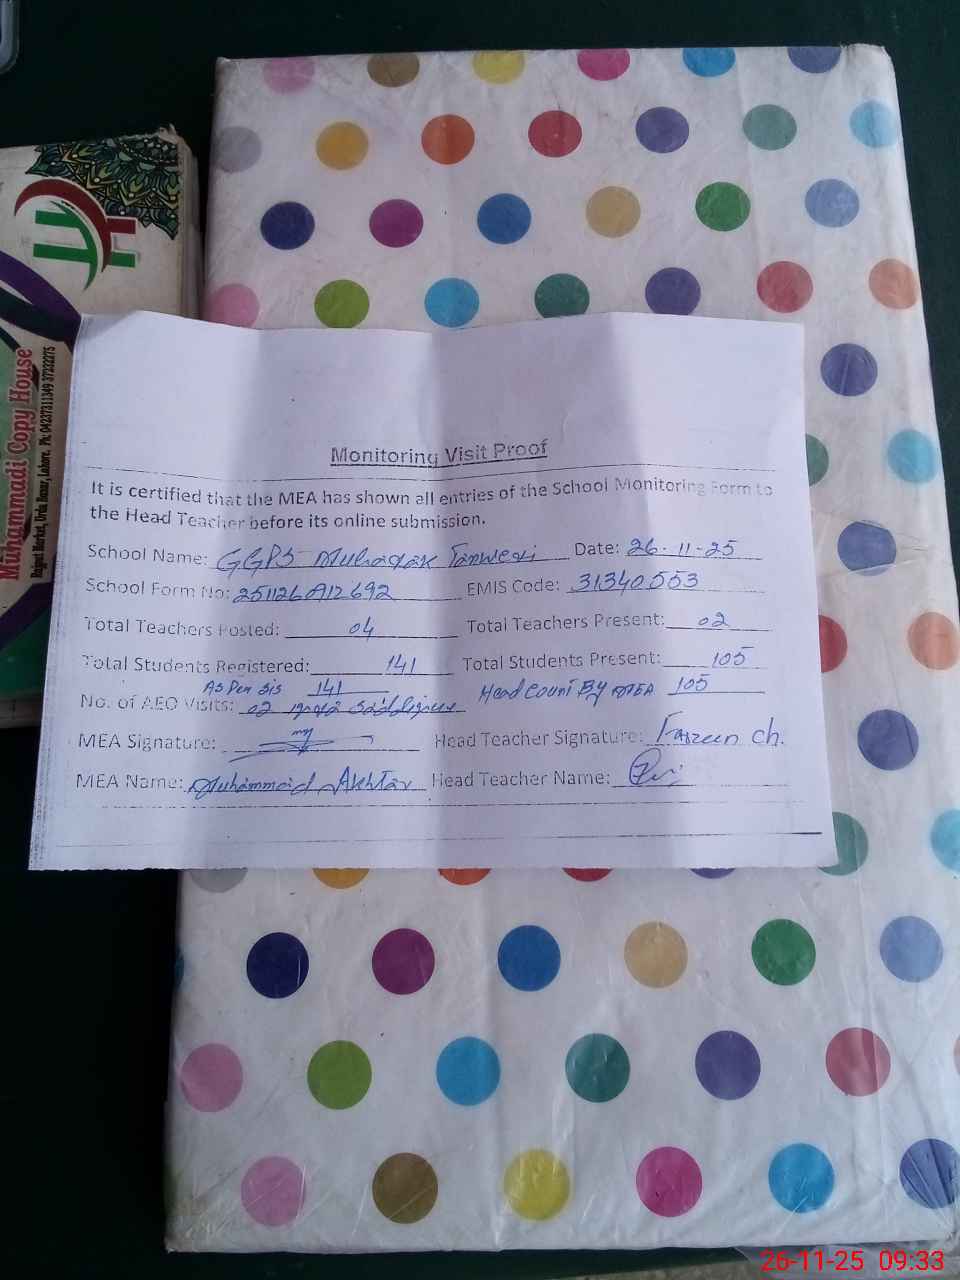 Muhammadi Copy House
Rajput Market, Urdu Bazar, Lahore. Ph: 04237311349 37232275
Monitoring Visit Proof
It is certified that the MEA has shown all entries of the School Monitoring Form to
the Head Teacher before its online submission.
School Name: GGPS Mubarak Date: 26-11-25
School Form No: 251126A12692 EMIS Code: 31340553
Total Teachers Posted: 04 Total Teachers Present: 02
Total Students Registered: 141 Total Students Present: 105
As Per SIS 141 Head Count By MEA 105
No. of AEO Visits: 02
MEA Signature: Head Teacher Signature: Farzeen Ch.
MEA Name: Muhammad Akhtar Head Teacher Name:
26-11-25 09:33